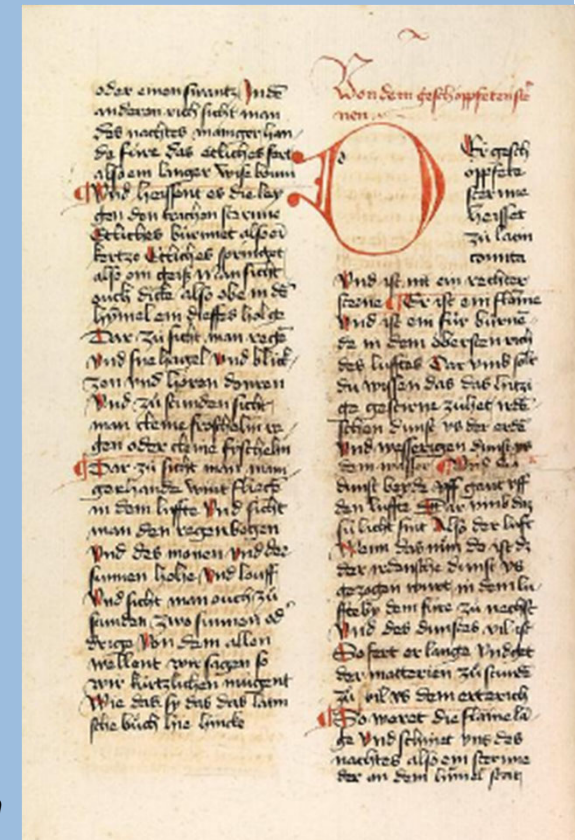 oder einen swantz Jn dē
anderen rich sicht man
des nachtes maniger han
de fúre das etliches fert
also ein langer wise boum
Vnd heissent es die ley
gen den trachen sterne
Etliches búrnnet also ei
kertze Etliches springet
also ein geiß man sicht
ouch dicke also obe in dē
hymel ein dieffes hol ge
Dar zú sicht man rege
vnd sne hagel vnd blick
zen vnd hören donren
Vnd zú stunden sicht
man cleine fröschelin re
gen oder cleine fyschelin
Dar zú sicht man man
gerhande
in dem luffte Vnd sicht
man den regenbogen
Vnd des monen vnd der
sunnen hofe vnd louff
Vnd sicht man ouch zú
stunden zwo sunnen od
drige Von dem allen
wellent wir sagen so
wir kúrtzlichen múgent
Wie das sy das das latin
sche búch hie
Von dem geschopfeten ste
nen
DEr gesch
opfete
sterne
heisset
zú latin
cometa
Vnd ist nit ein rechter
sterne Er ist ein flame
Vnd ist ein fúr búrne
de in dem obersten rich
des luftes Dar vmb solt
du wissen das das
ge gestirne zúhet irdē
schen dunst vs der erde
Vnd wesserigen dunst vs
dem wasser
dunst beyde vff gant vff
den luffte Dar vmb daz
sú licht sint Also der luft
Wenn das nún do ist dz
der irdensche dunst vs
gezogen wurt in dem lu
fte by dem fúre zú nechst
Vnd des dunstes vil ist
So fert er lange Vnd
der matterien zú stund
zú vil vs dem erterich
So weret die flame la
ge Vnd schinet vns des
nachtes also ein sterne
der an dem himel stat